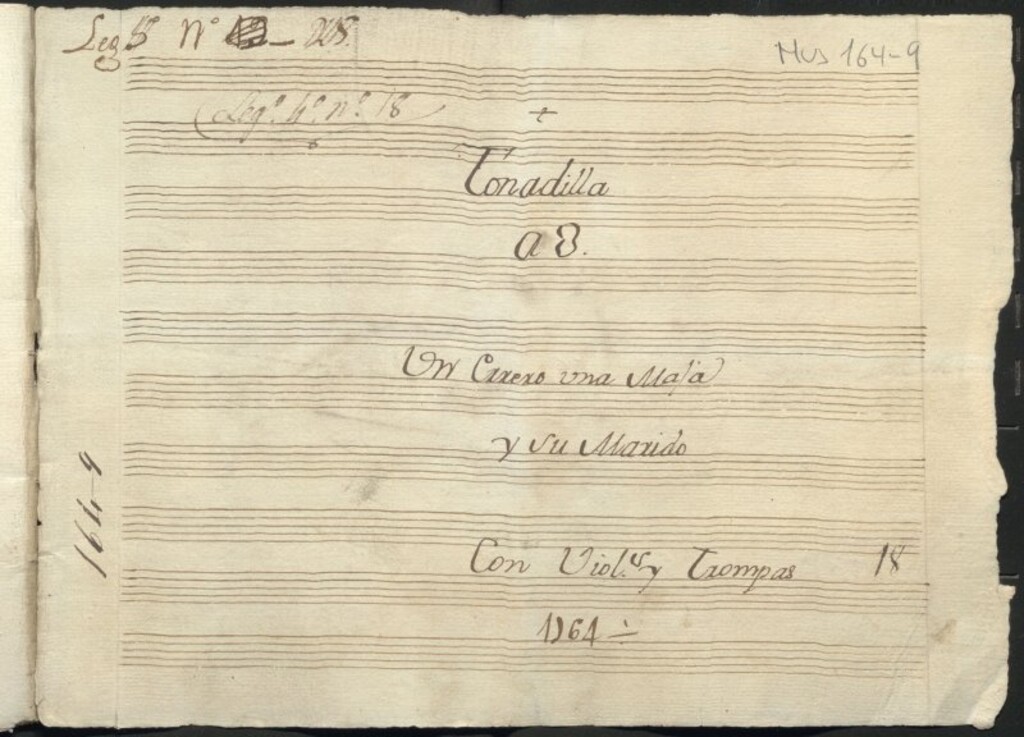 Leg 5º Nº 228.
Mus 164-9
(Legº. 4º. nº. 18
+
Tonadilla
a 3.
Un Cixexo vna Maja
y su Marido
Con Viol.s y Trompas
18
1764
164-9